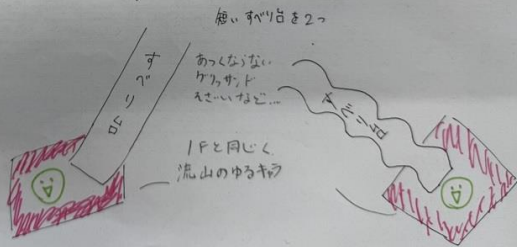 短いすべり台を2つ
すべり台
あつくならない
グリッサンド
そざいなど…
すべり台
1Fと同じく
流山のゆるキャラ